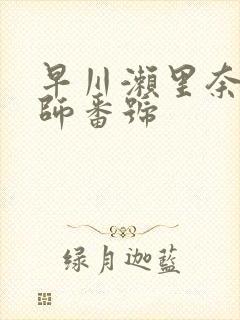 早川瀬里奈
師番號
绿月迦蓝